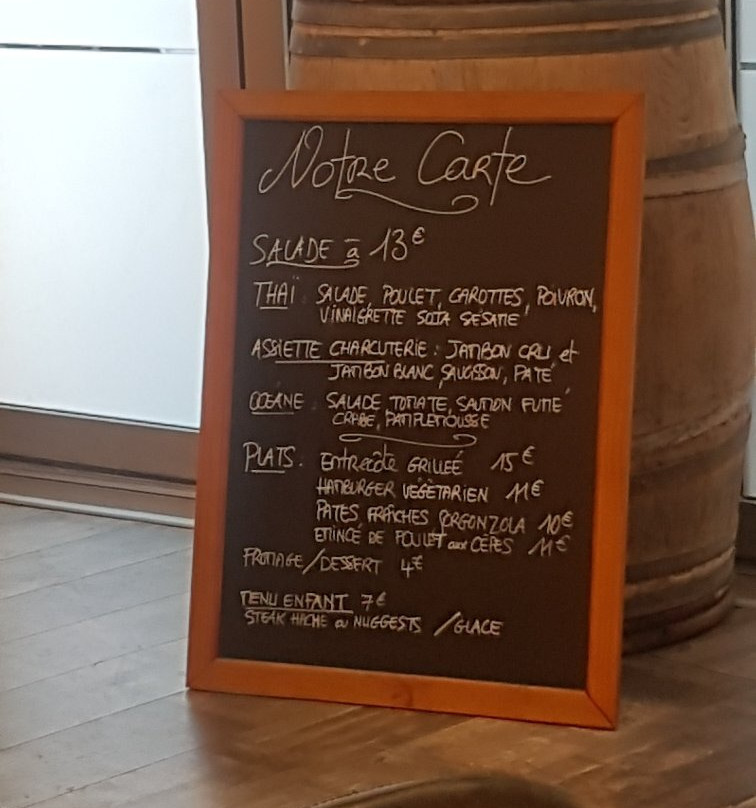 Notre Carte
SALADE à 13€
THAÏ : SALADE, POULET, CAROTTES, POIVRON,
VINAIGRETTE SOJA SÉSAME
ASSIETTE CHARCUTERIE : JAMBON CRU et
JAMBON BLANC, SAUCISSON, PATÉ
OCÉANE : SALADE TOMATE, SAUMON FUMÉ
CRABE, PAMPLEMOUSSE
PLATS : ENTRECÔTE GRILLEÉ 15€
HAMBURGER VÉGÉTARIEN 11€
PATES FRAÎCHES GORGONZOLA 10€
EMINCÉ DE POULET aux CÈPES 11€
FROMAGE/DESSERT 4€
MENU ENFANT 7€
STEAK HACHE ou NUGGESTS /GLACE